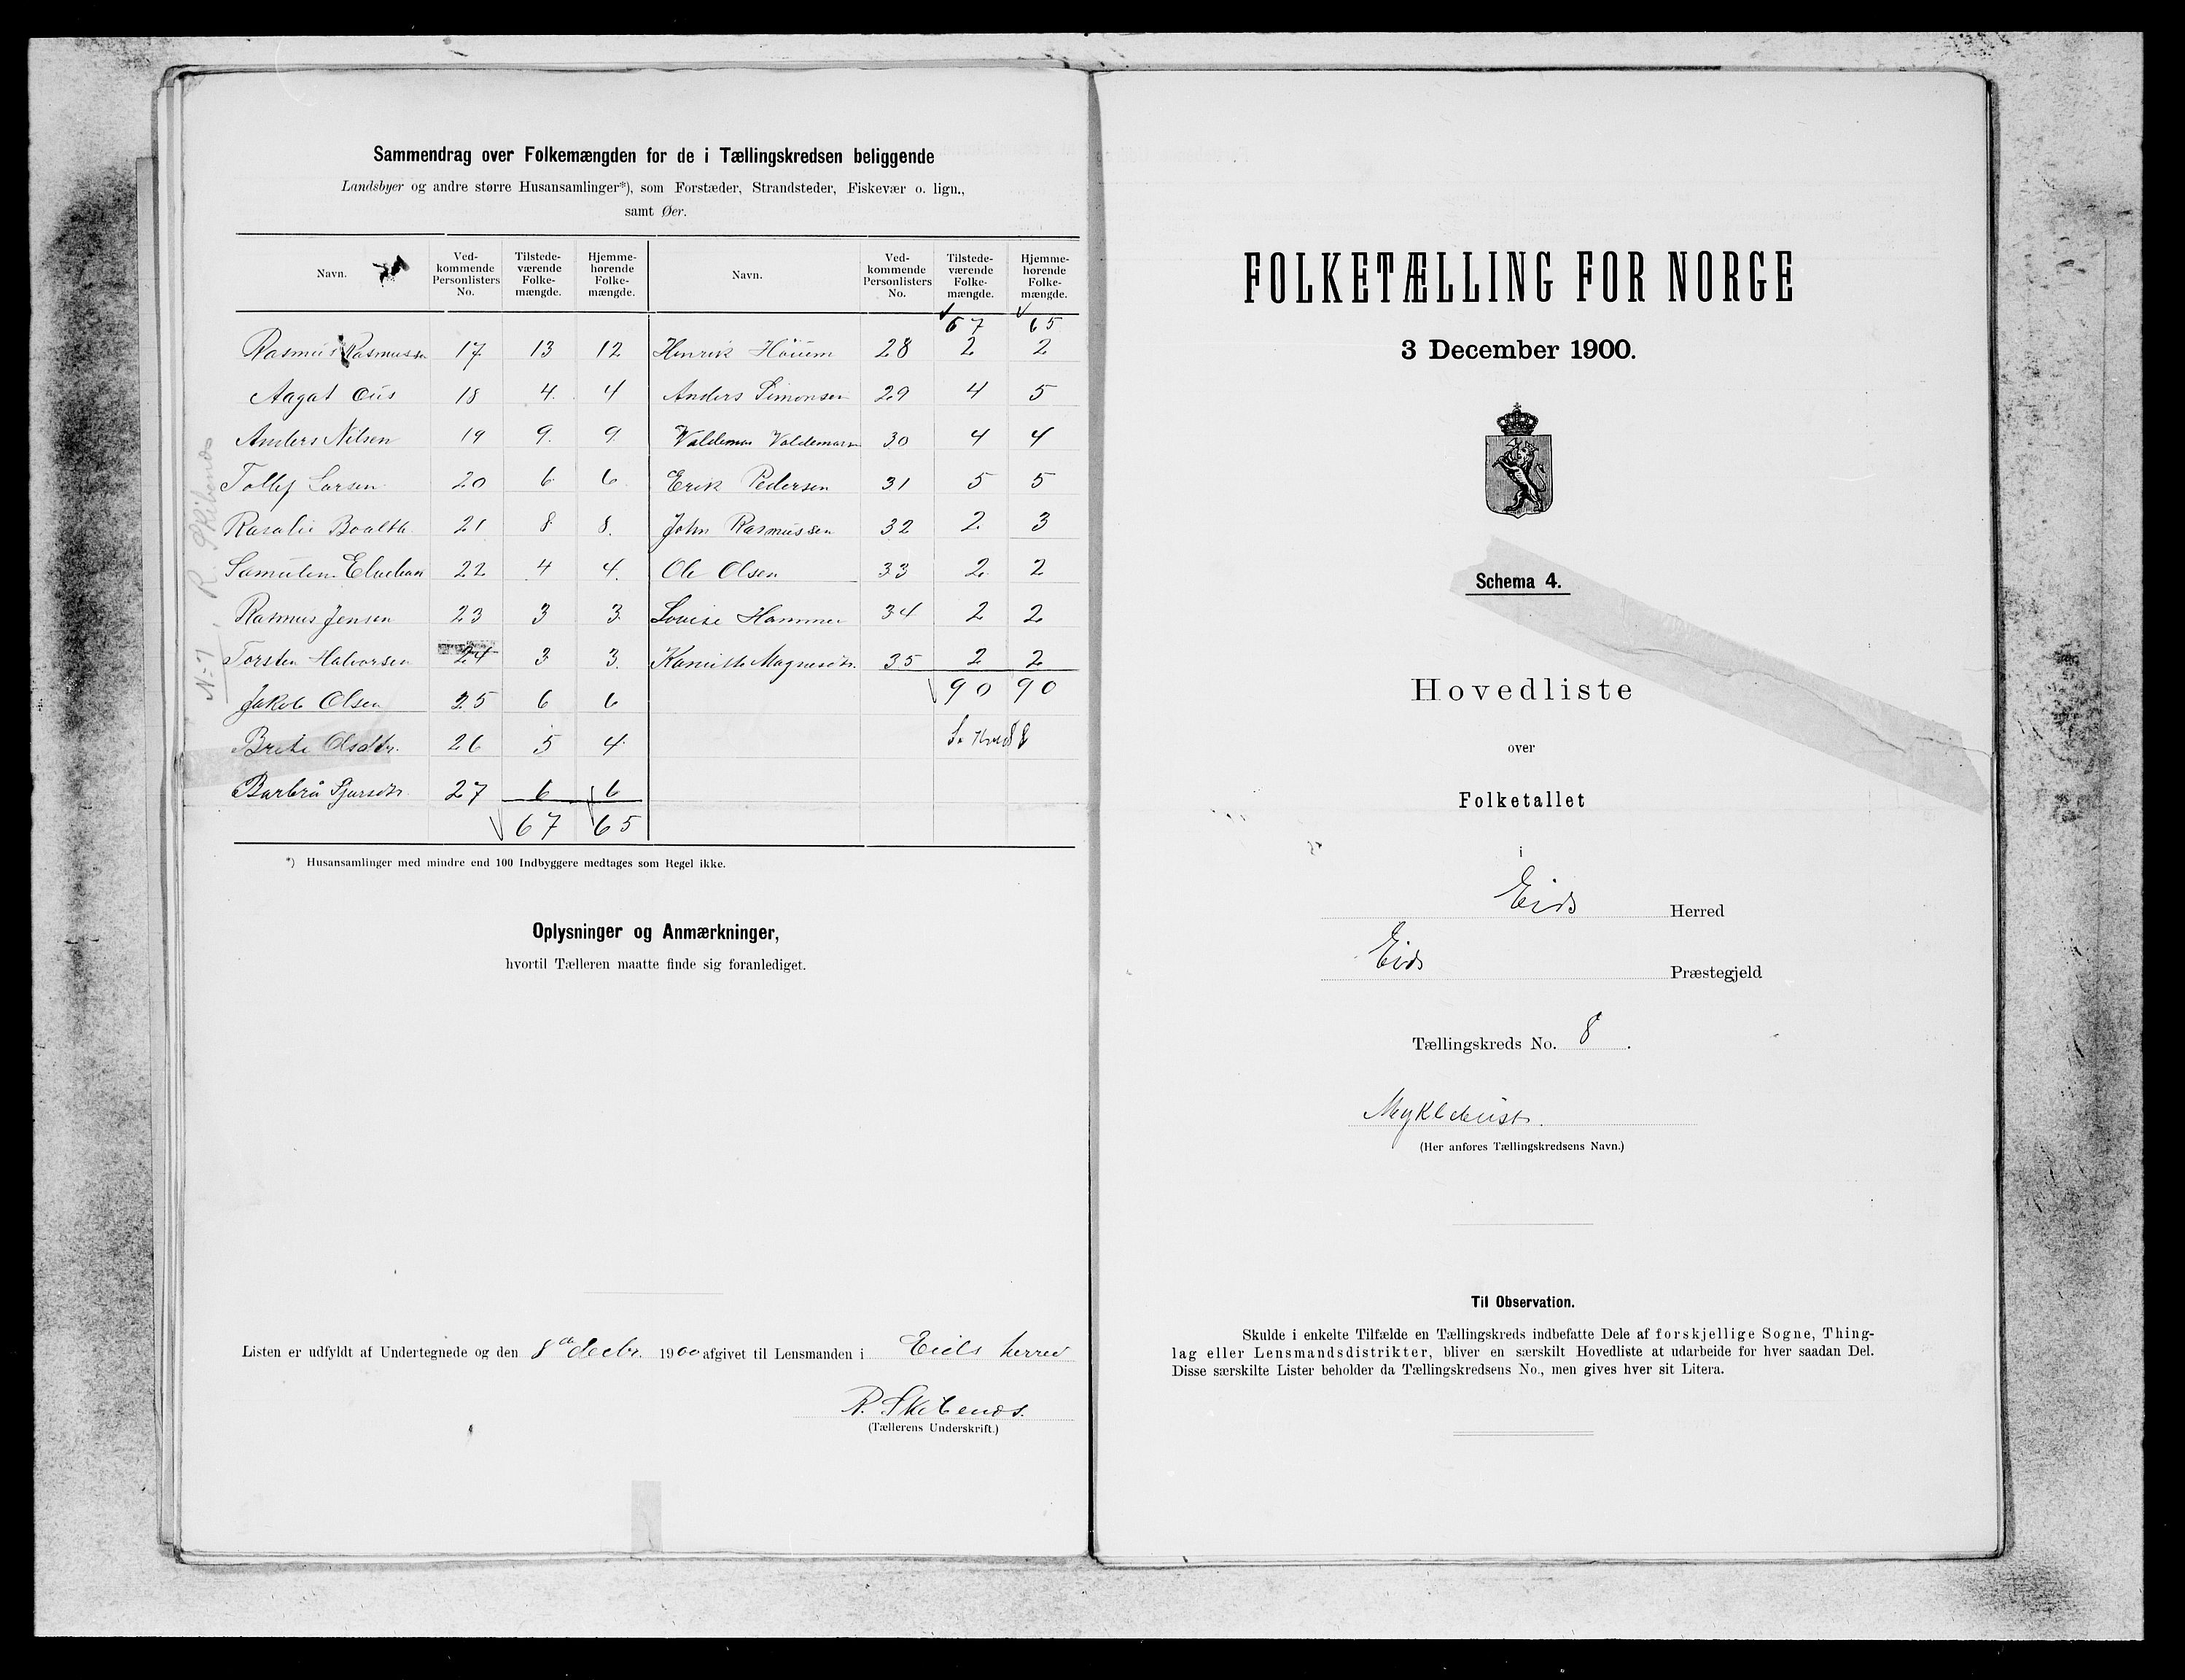 Sammendrag over Folkemængden for de i Tællingskredsen beliggende
Landsbyer og andre større Husansamlinger*), som Forstæder, Strandsteder, Fiskevær o. lign.,
samt Øer.
Navn. Ved-kommende Personlisters No. Tilstede-værende Folke-mængde. Hjemme-hørende Folke-mængde. Navn. Ved-kommende Personlisters No. Tilstede-værende Folke-mængde. Hjemme-hørende Folke-mængde.
67 65
Rasmus Rasmussen 17 13 12 Henrik Höium 28 2 2
Aagat 18 4 4 Anders Simonsen 29 4 5
Anders Nilsen 19 9 9 Valdemar Valdemarsen 30 4 4
Tollef Larsen 20 6 6 Erik Pedersen 31 5 5
Rasalie 21 8 8. John Rasmussen 32 2 3
22 4 4. Ole Olsen 33 2 2
Rasmus Jensen 23 3 3 Louise Hammer 34 2 2
Torsten Halvorsen 24 3 3. Magnesdtr. 35 2 2
Jakob Olsen 25 6 6 90 90
Brite Olsdtr. 26 5 4
Barbra 27 6 6
67 65
*) Husansamlinger med mindre end 100 Indbyggere medtages som Regel ikke.
N-7, R. Skibenes
Oplysninger og Anmærkninger,
hvortil Tælleren maatte finde sig foranlediget.
Listen er udfyldt af Undertegnede og den 8de decbr. 1900 afgivet til Lensmanden i Eids herred
R. Skibenes.
(Tællerens Underskrift.)
FOLKETÆLLING FOR NORGE
3 December 1900.
Schema 4.
Hovedliste
over
Folketallet
i
Eids Herred
Eids Præstegjeld
Tællingskreds No. 8.
Myklebust.
(Her anføres Tællingskredsens Navn.)
Til Observation.
Skulde i enkelte Tilfælde en Tællingskreds indbefatte Dele af forskjellige Sogne, Thing-
lag eller Lensmandsdistrikter, bliver en særskilt Hovedliste at udarbeide for hver saadan Del.
Disse særskilte Lister beholder da Tællingskredsens No., men gives hver sit Litera.